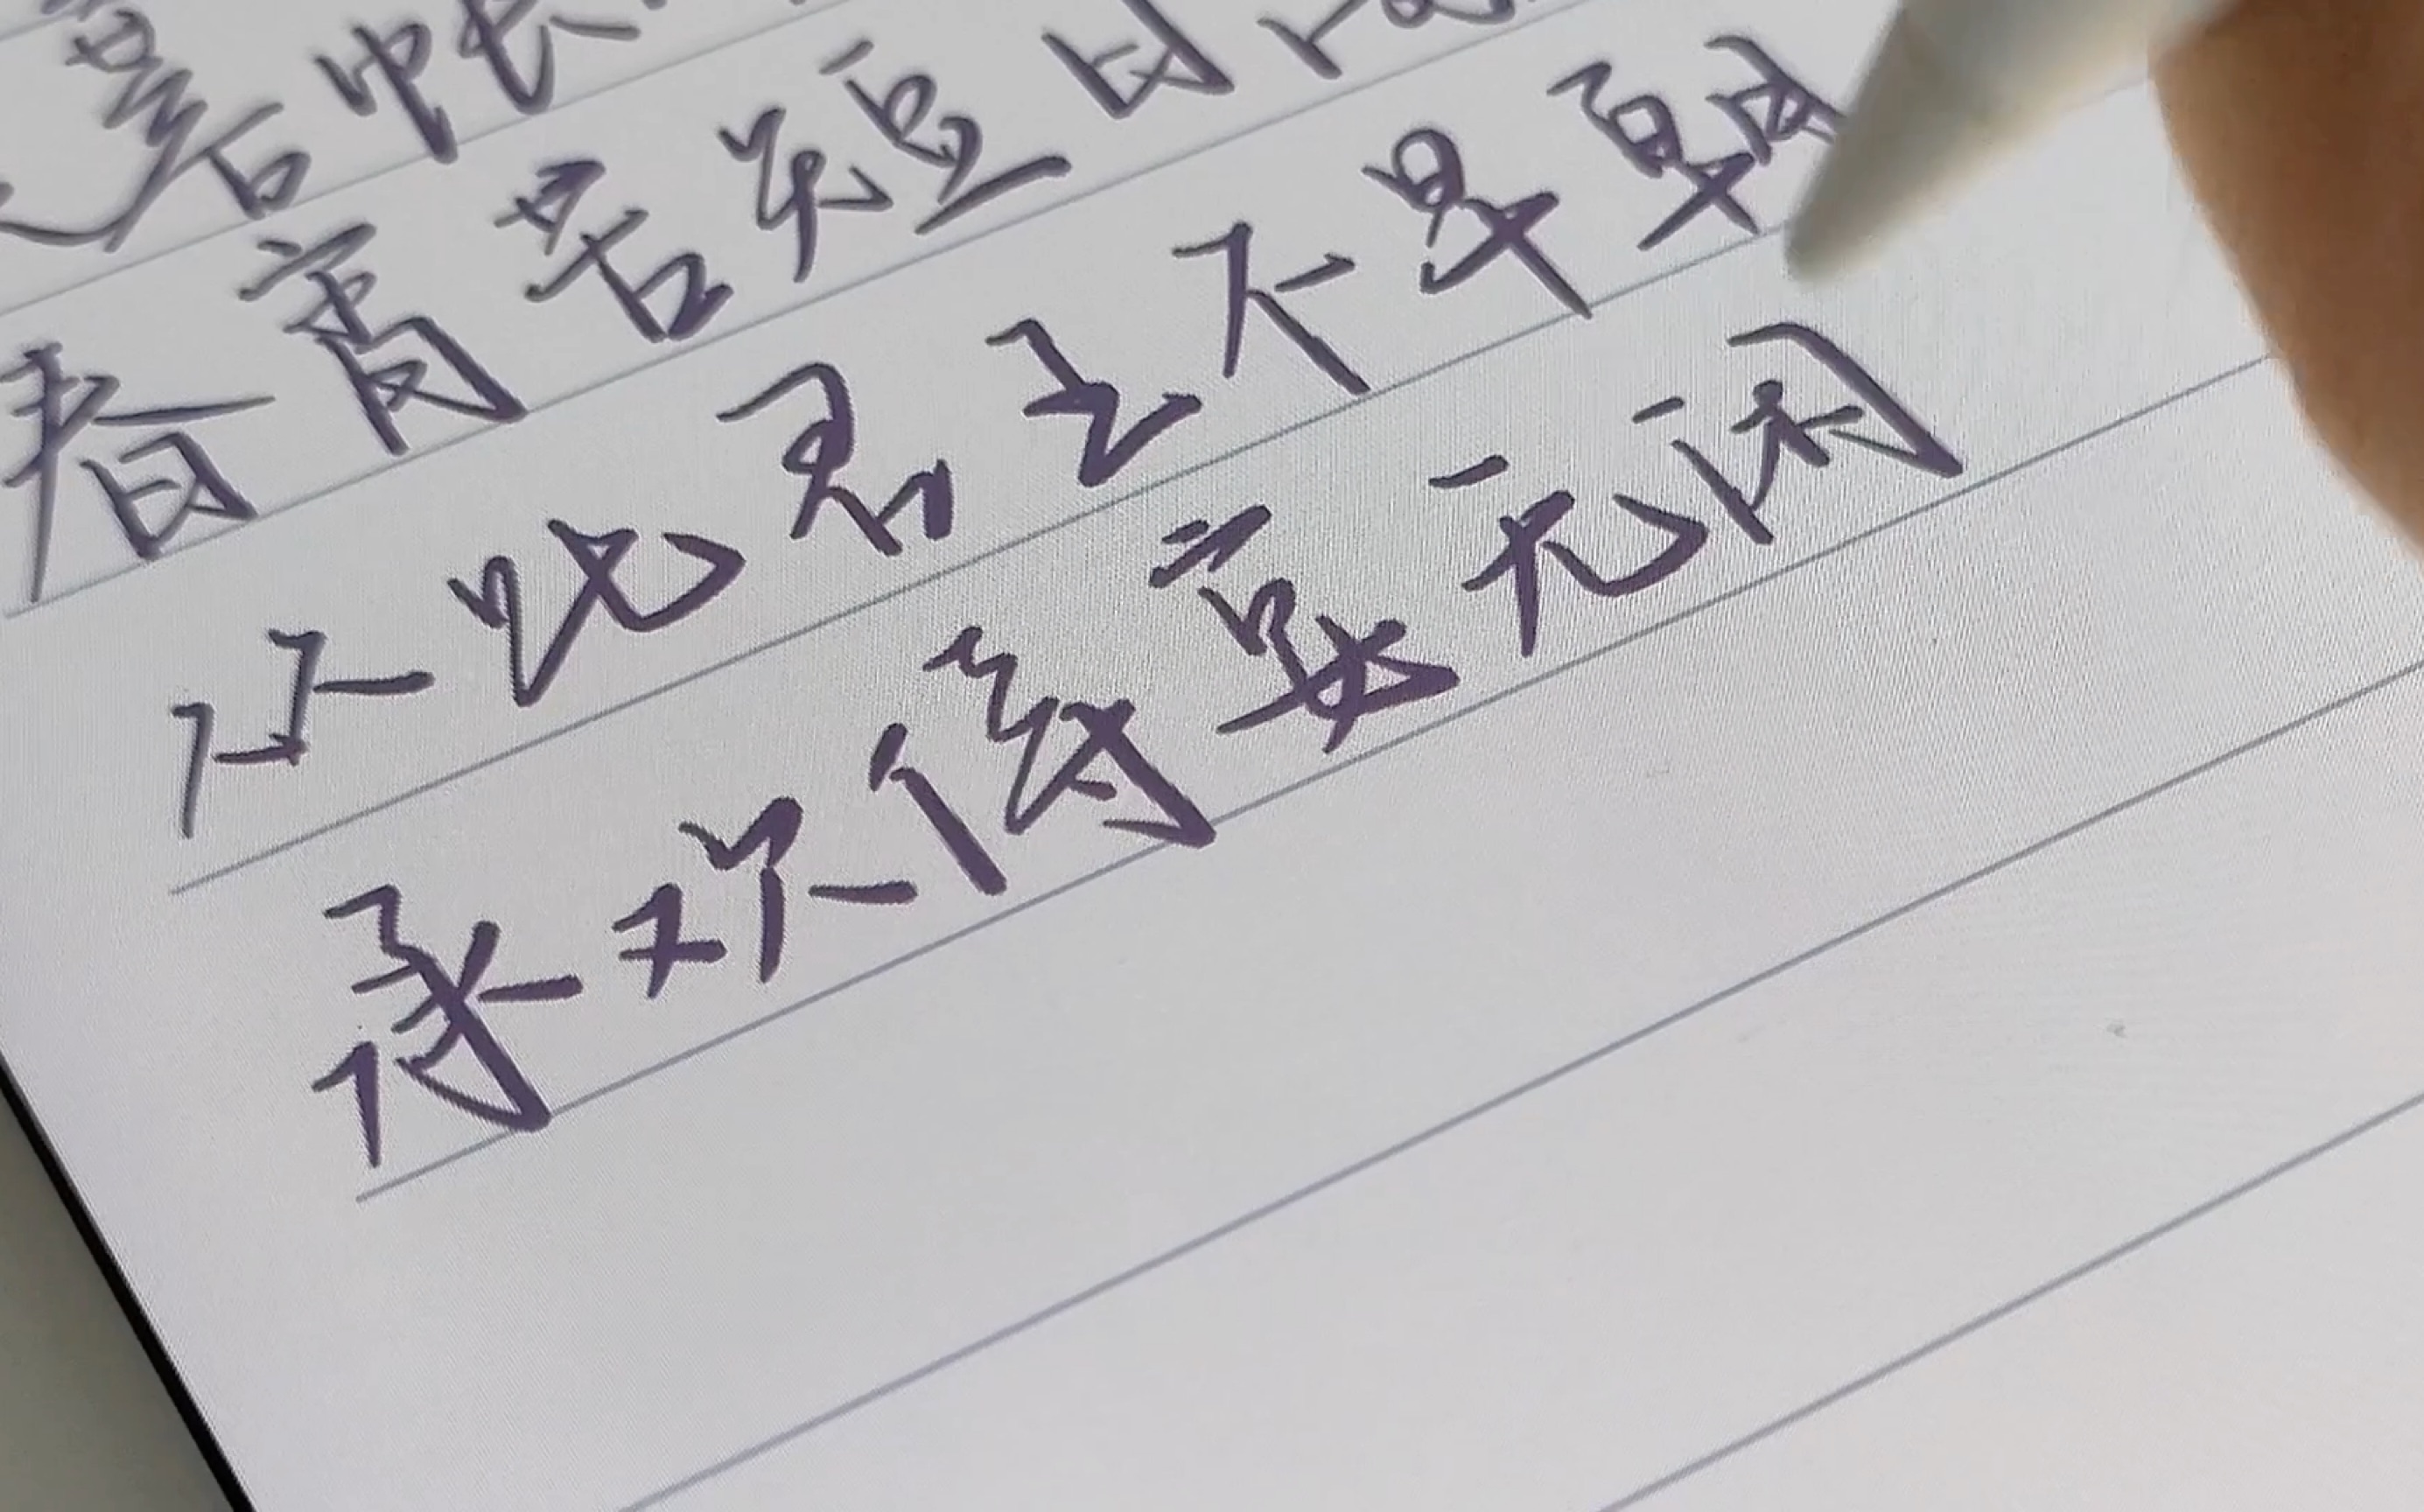 蓉帐
春宵苦短日
从此君王不早朝
承欢侍宴无闲